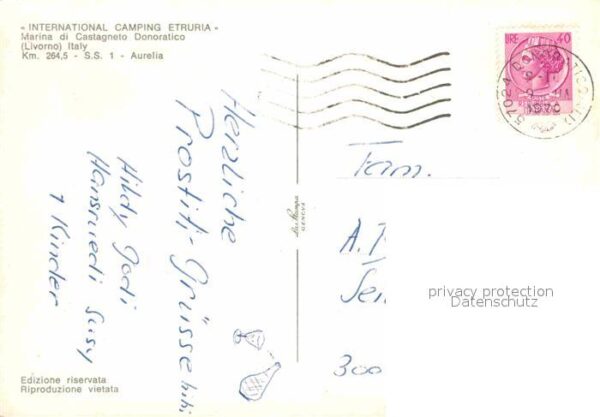 « INTERNATIONAL CAMPING ETRURIA »
Marina di Castagneto Donoratico
(Livorno) Italy
Km. 264,5 - S.S. 1 - Aurelia
LIRE 40
57024
1970
Herzliche
Prostiti-Grüsse hihi
Hildy Godi
Hansruedi Susy
+ Kinder
La Stampa
GENOVA
Fam.
A.
300
privacy protection
Datenschutz
Edizione riservata
Riproduzione vietata